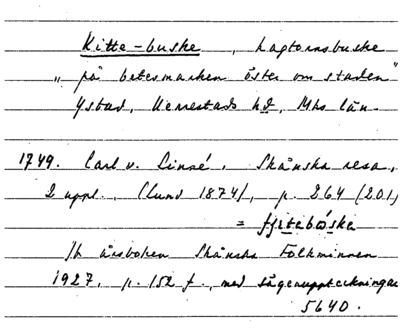 Kitte-buske, hagtornsbuske
"på betesmarken öster om staden"
Ystad, Herrestads hd, Mhs län.
1749. Carl v. Linné, Skånska resa,
2 uppl. (Lund 1874), p. 264 (201)
= fjetebåske
Jfr årsboken Skånska Folkminnen
1927, p. 152 f., med sägenuppteckningar
5640.